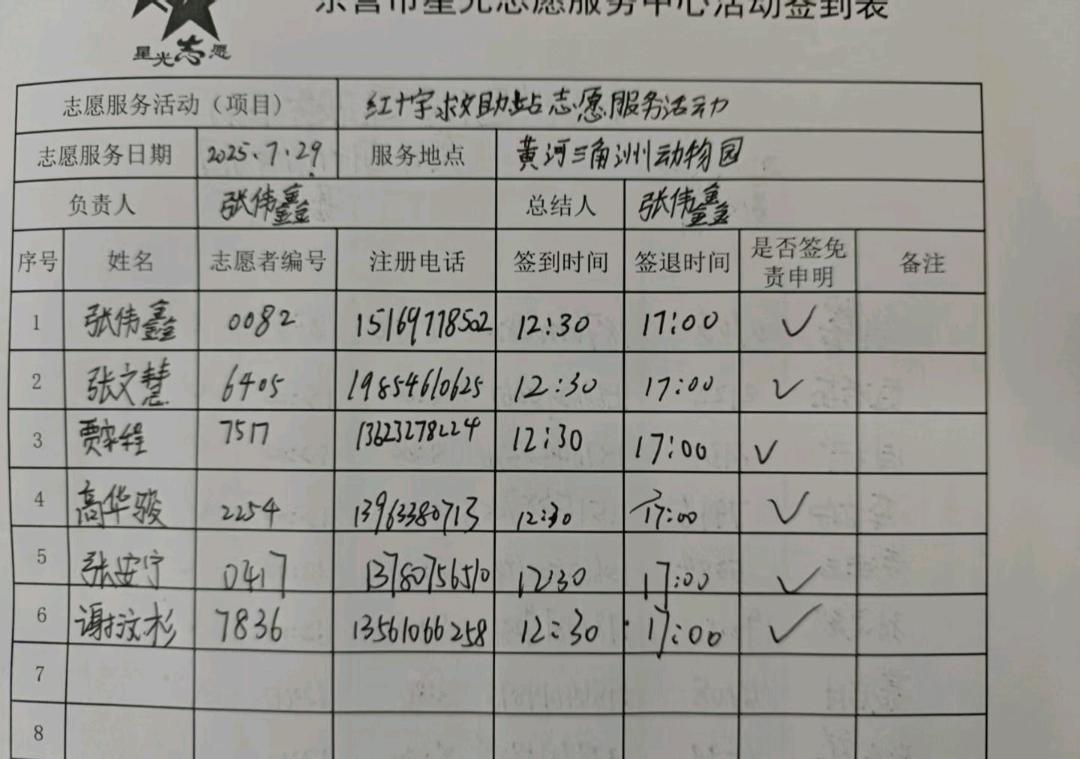 东营市星光志愿服务中心活动签到表
星光志愿
志愿服务活动（项目） 红十字救助站志愿服务活动
志愿服务日期 2025.7.29. 服务地点 黄河三角洲动物园
负责人 张伟鑫 总结人 张伟鑫
序号 姓名 志愿者编号 注册电话 签到时间 签退时间 是否签免责申明 备注
1 张伟鑫 0082 15169778502 12:30 17:00 ✓
2 张文慧 6405 19854610625 12:30 17:00 ✓
3 7517 13623278224 12:30 17:00 ✓
4 高华骏 2254 13963380713 12:30 17:00 ✓
5 张安宁 0417 13780756510 12:30 17:00 ✓
6 谢汶杉 7836 13561066258 12:30 17:00 ✓
7
8